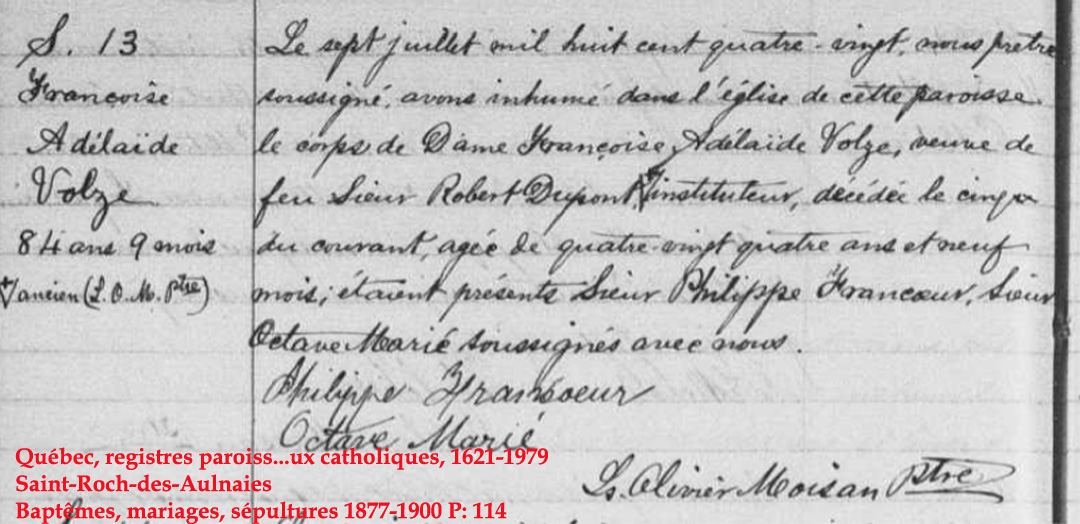 S. 13
Françoise
Adélaïde
Volze
84 ans 9 mois
ancien (L. O. M. Ptre)
Le sept juillet mil huit cent quatre-vingt, nous prêtre
soussigné, avons inhumé dans l'église de cette paroisse
le corps de Dame Françoise Adélaïde Volze, veuve de
feu Sieur Robert Dupont, instituteur, décédée le cinq
du courant, agée de quatre-vingt quatre ans et neuf
mois; étaient présents Sieur Philippe Francœur, Sieur
Octave Marié soussignés avec nous.
Philippe Francoeur
Octave Marié
Ls. Olivier Moisan Ptre
Québec, registres paroiss...ux catholiques, 1621-1979
Saint-Roch-des-Aulnaies
Baptêmes, mariages, sépultures 1877-1900 P: 114